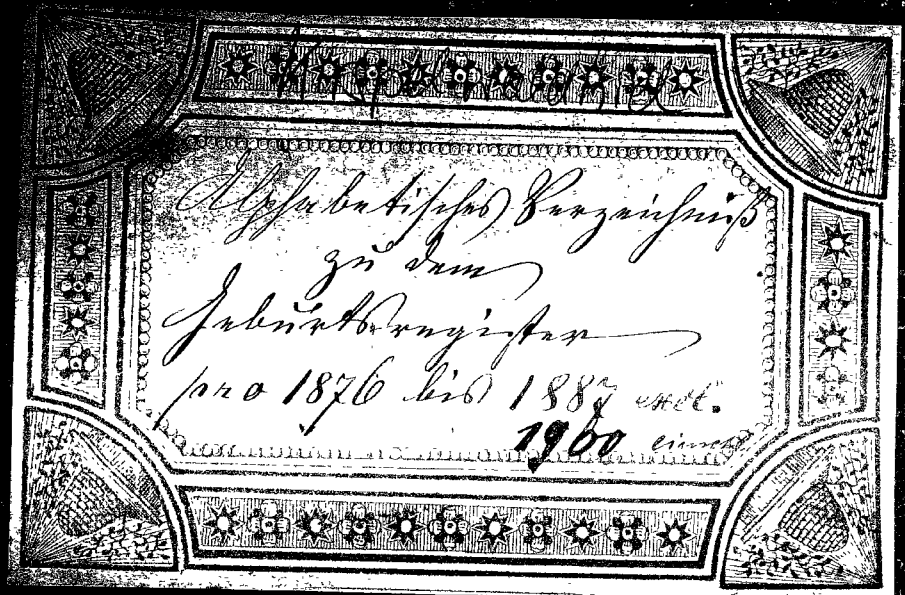 Alphabetisches Verzeichniß
zu dem
Geburtsregister
pro 1876 bis 1887 excl.
1900